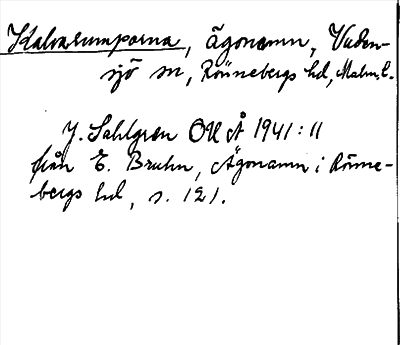 Kalvarumporna, ägonamn, Vaden-
sjö sn, Rönnebergs hd, Malm. l.
J. Sahlgren OUÅ 1941:11
från E. Bruhn, Ägonamn i Rönne-
bergs hd, s. 121.